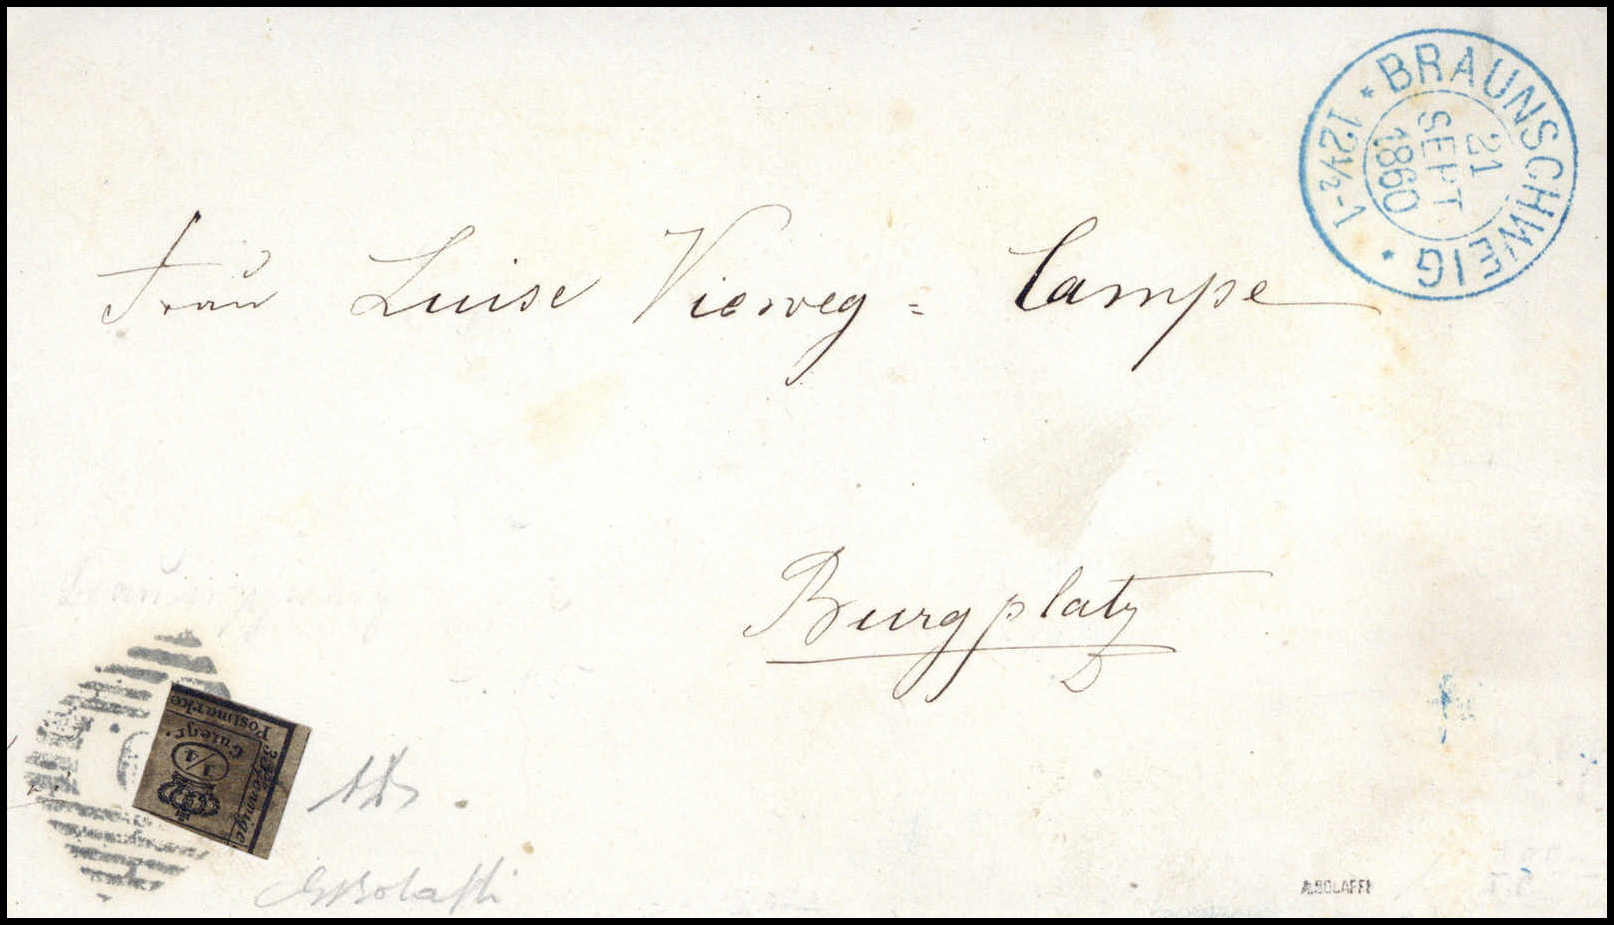 * BRAUNSCHWEIG *
21
SEPT
1860
12½-1
Frau Luise Vieweg = Campe
Burgplatz
Postmarke
Gutegr.
1/4
3 Pfennige
ABolaffi
A.BOLAFFI